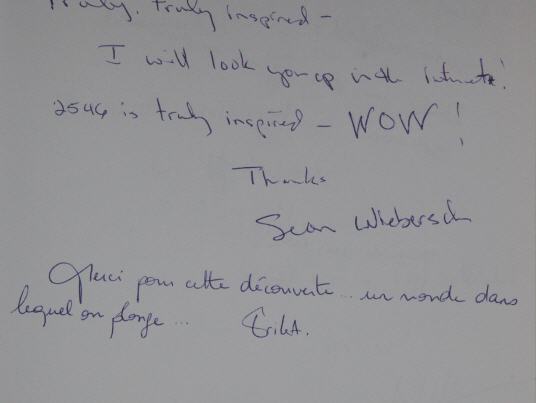 Truly, truly inspired –
I will look you up in the internet!
2546 is truly inspired – WOW!
Thanks
Sean Wiebersch
Merci pour cette découverte... un monde dans
lequel on plonge...